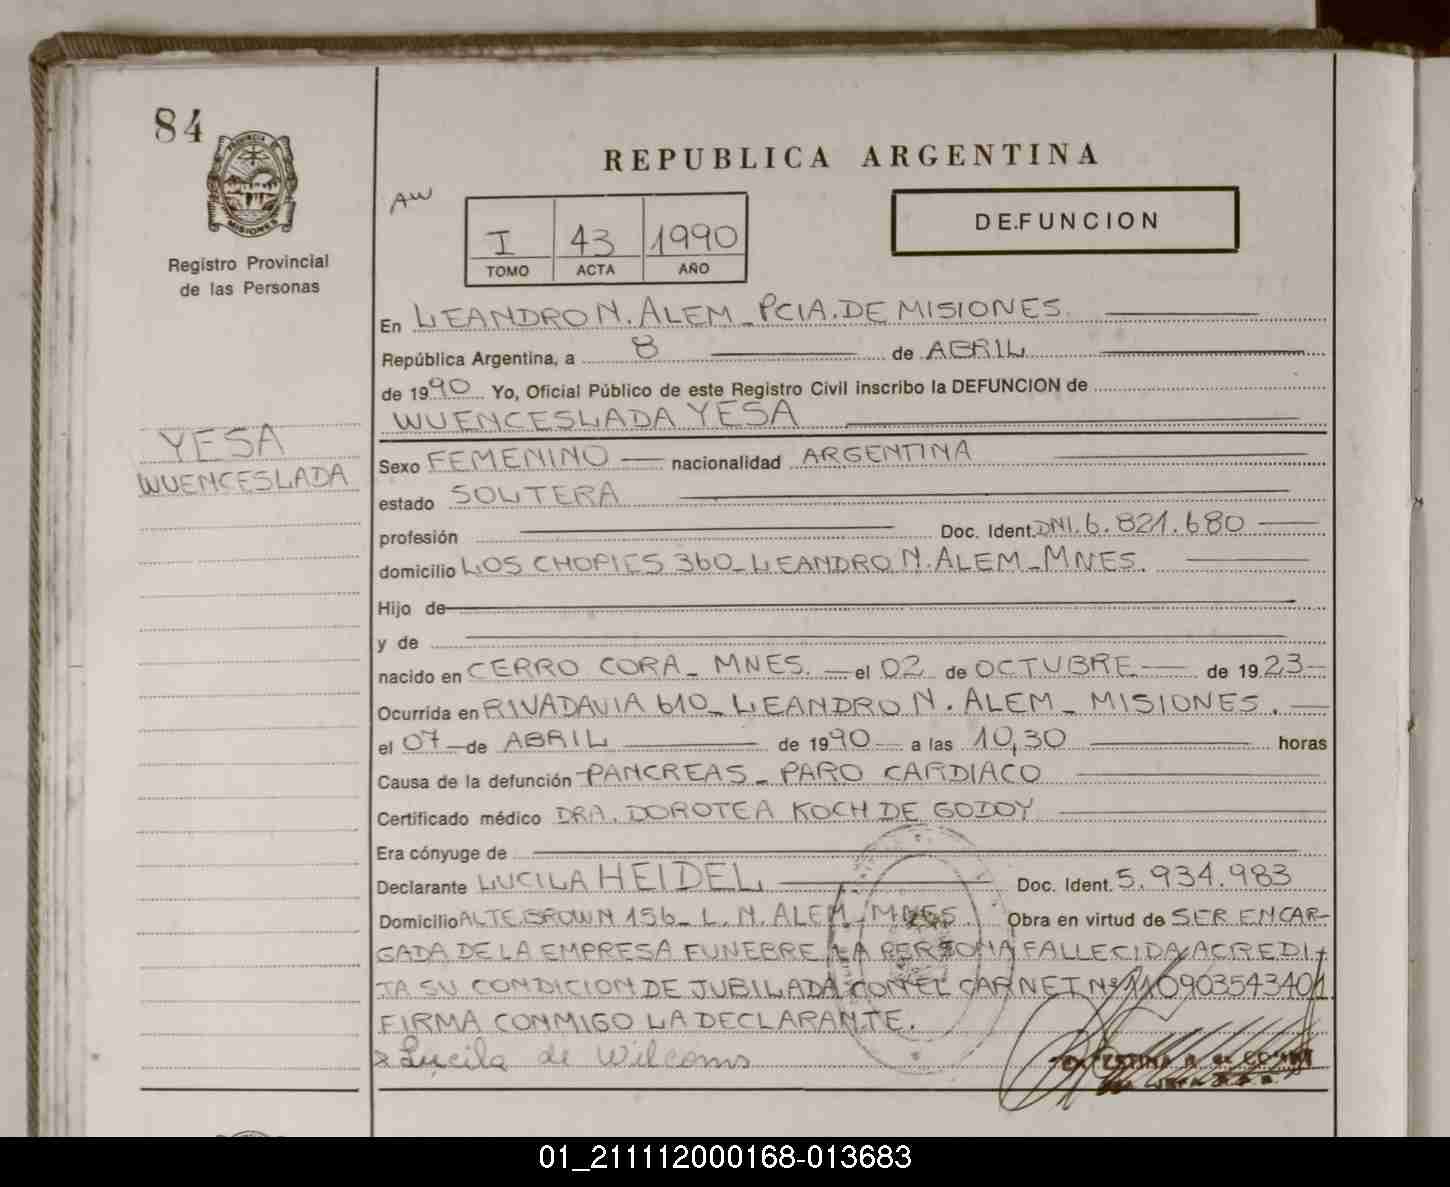 84
PROVINCIA DE
MISIONES
Registro Provincial
de las Personas
REPUBLICA ARGENTINA
AW
I 43 1990
TOMO ACTA AÑO
DEFUNCION
En LEANDRO N. ALEM_PCIA. DE MISIONES.
República Argentina, a 8 de ABRIL
de 1990 Yo, Oficial Público de este Registro Civil inscribo la DEFUNCION de
WUENCESLADA YESA
YESA
WUENCESLADA
Sexo FEMENINO nacionalidad ARGENTINA
estado SOLTERA
profesión Doc. Ident. DNI. 6.821.680
domicilio LOS CHOPIES 360_LEANDRO N. ALEM_MNES.
Hijo de
y de
nacido en CERRO CORA_ MNES. el 02 de OCTUBRE de 1923
Ocurrida en RIVADAVIA 610_LEANDRO N. ALEM_ MISIONES.
el 07 de ABRIL de 1990 a las 10,30 horas
Causa de la defunción PANCREAS_ PARO CARDIACO
Certificado médico DRA. DOROTEA KOCH DE GODOY
Era cónyuge de
Declarante LUCILA HEIDEL Doc. Ident. 5.934.983
Domicilio ALTE. BROWN 156_ L. N. ALEM_MNES. Obra en virtud de SER ENCAR-
GADA DE LA EMPRESA FUNEBRE, LA PERSONA FALLECIDA ACREDI-
TA SU CONDICION DE JUBILADA CON EL CARNET Nº 110903543401
FIRMA CONMIGO LA DECLARANTE.
Lucila de
01_211112000168-013683